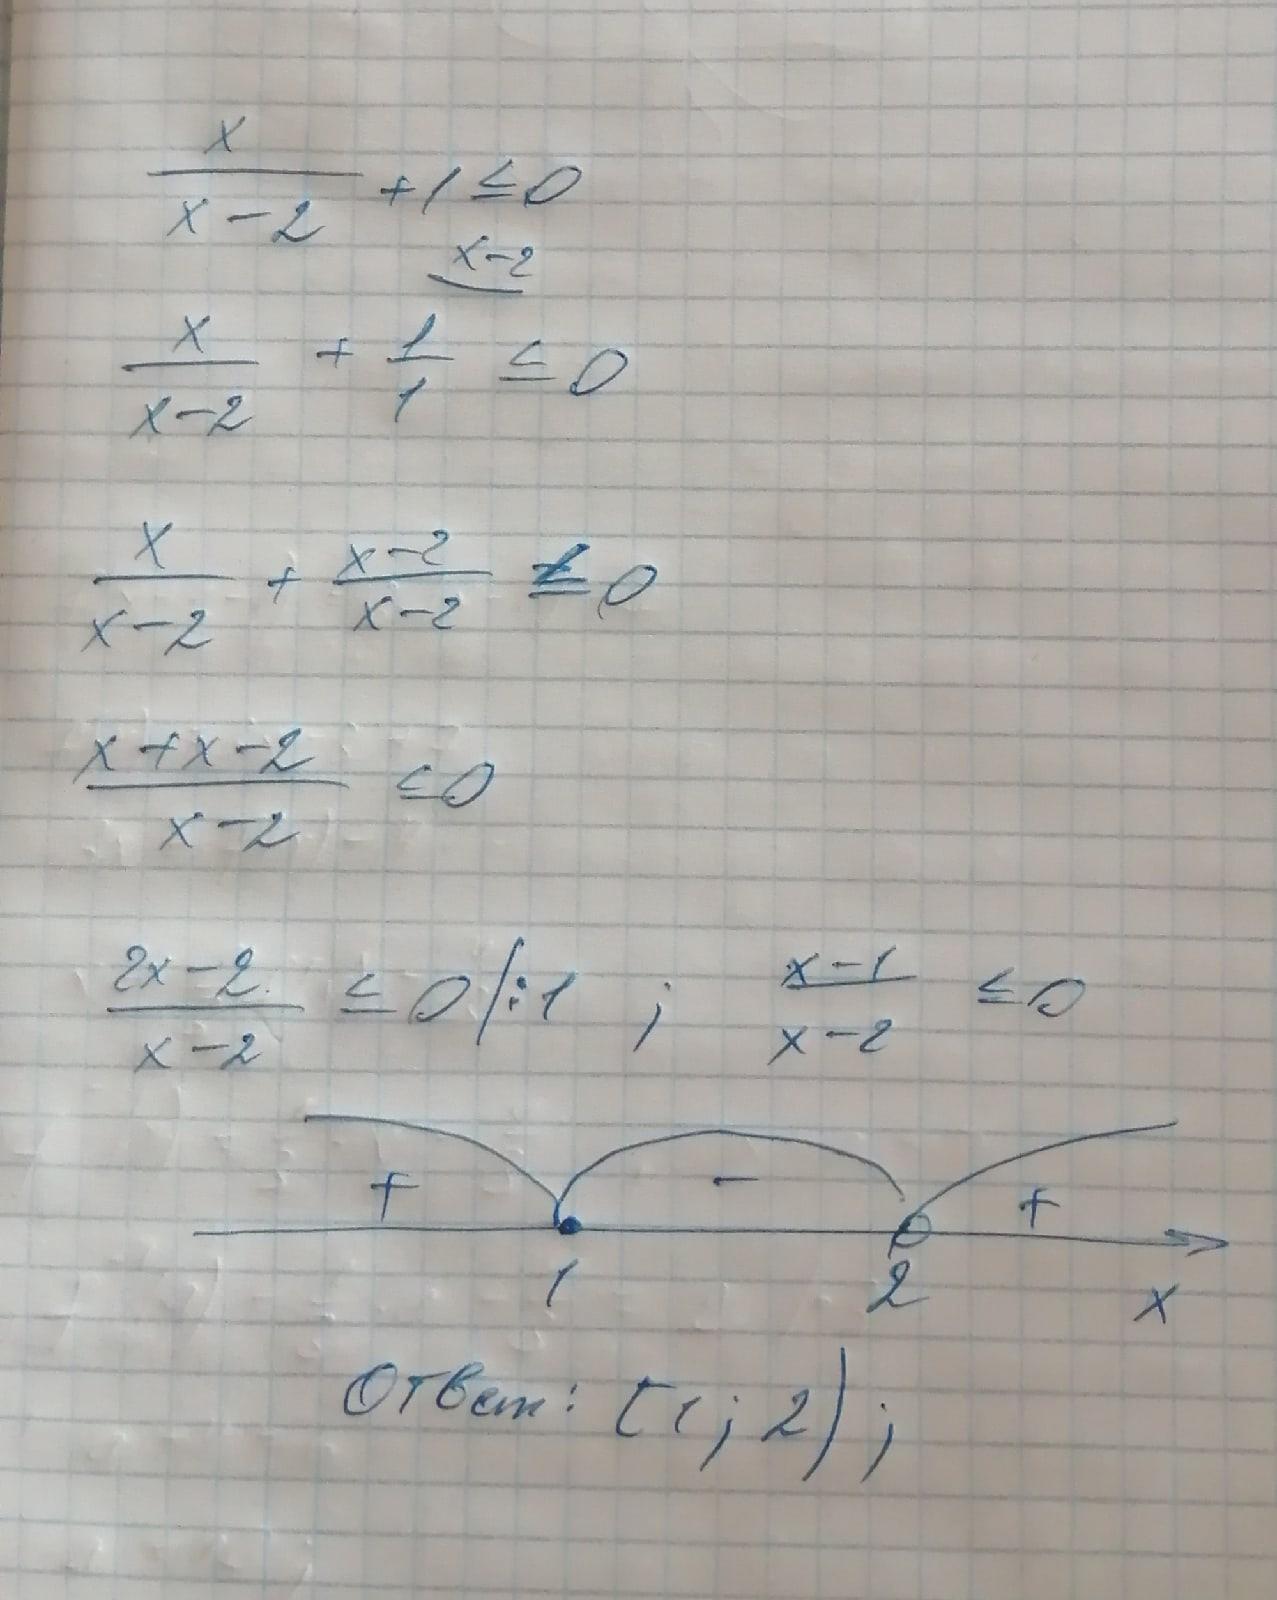 x/(x-2) + 1 ≤ 0
x-2
x/(x-2) + 1/1 ≤ 0
x/(x-2) + (x-2)/(x-2) ≤ 0
(x+x-2)/(x-2) ≤ 0
(2x-2)/(x-2) ≤ 0 /:1 ; (x-1)/(x-2) ≤ 0
+ - +
1 2 x
Ответ: [1; 2);